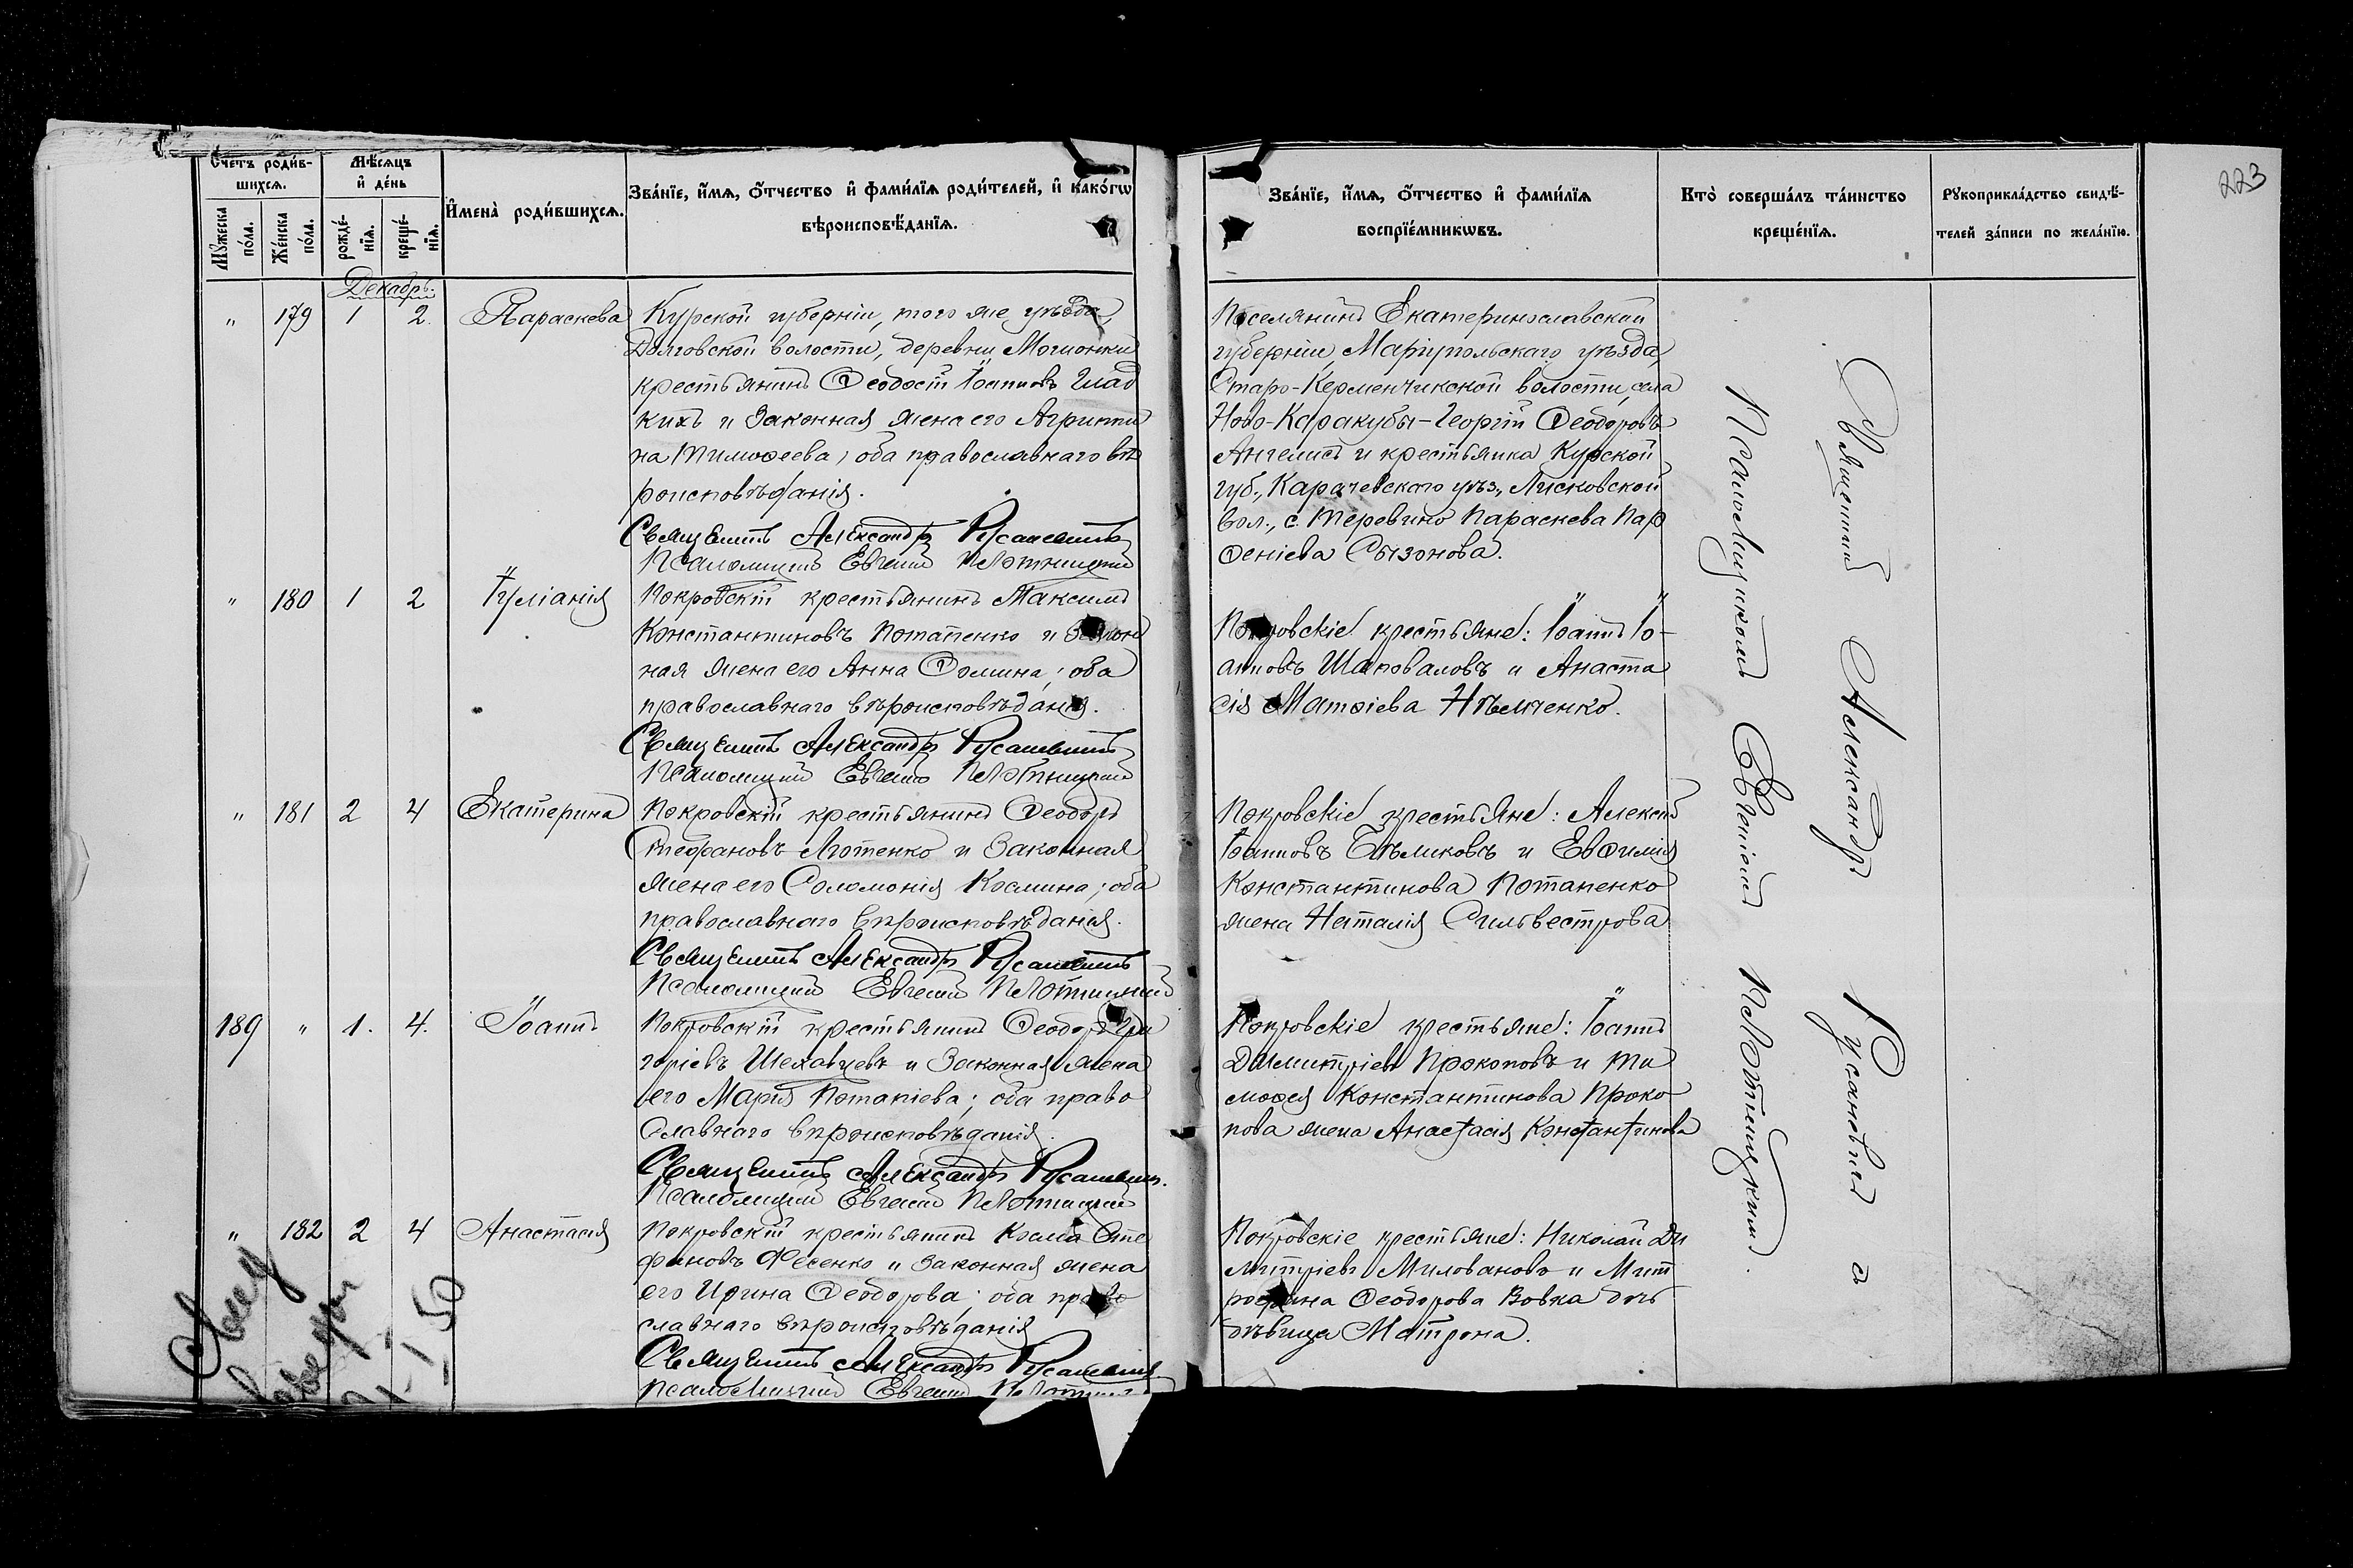 223
Счетъ роди́в-
шихся.
Мѣ́сяцъ
и҆ де́нь
Мꙋ́жеска
по́ла.
Же́нска
по́ла.
рожде́-
нїѧ.
креще́-
нїѧ.
И҆мена̀ роди́вшихсѧ.
Зва́нїе, и҆́мѧ, ѻ҆́тчество и҆ фами́лїѧ роди́телей, и҆ како́гѡ
вѣроисповѣ́данїѧ.
Зва́нїе, и҆́мѧ, ѻ҆́тчество и҆ фами́лїѧ
воспрїе́мникѡвъ.
Кто̀ соверша́лъ та́инство
креще́нїѧ.
Рꙋкоприкла́дство свидѣ́-
телей за́писи по жела́нїю.
Декабрь.
" 179 1 2. Параскева
Курской губерніи, того же уѣзда,
Долговской волости, деревни
крестьянинъ Ѳеодостй Іоанновъ Глад
кихъ и законная жена его Агриппи
на Тимоѳеева; оба православнаго вѣ
роисповѣданія.
Священникъ Александръ Русаневичъ
Псаломщикъ Евгений Плотницкий
Поселянинъ Екатеринославской
губерніи, Маріупольскаго уѣзда,
Старо-Керменчикской волости, села
Ново-Каракубы - Георгій Ѳеодоровъ
Ангелисъ и крестьянка Курской
губ., Карачевскаго уѣз., Лисковской
вол., с. Теревино Параскева Пар
ѳеніева Сызонова.
" 180 1 2 Іуліанія
Покровскій крестьянинъ Максимъ
Константиновъ Потапенко и закон
ная жена его Анна Ѳомина; оба
православнаго вѣроисповѣданія.
Священникъ Александръ Русаневичъ
Псаломщикъ Евгений Плотницкий
Покровскіе крестьяне: Іоаннъ Іо-
анновъ Шаповаловъ и Анаста
сія Матѳіева Нѣмченко.
" 181 2 4 Екатерина
Покровскій крестьянинъ Ѳеодоръ
Стефановъ Лютенко и законная
жена его Соломонія Космина; оба
православнаго вѣроисповѣданія.
Священникъ Александръ Русаневичъ
Псаломщикъ Евгений Плотницкий
Покровскіе крестьяне: Алексій
Іоанновъ Бѣликовъ и Евѳимія
Константинова Потапенко
жена Наталія Сильвестрова
189 " 1. 4. Іоаннъ
Покровскій крестьянинъ Ѳеодоръ Гри
горіевъ Шехавцевъ и законная жена
его Марія Потапіева; оба право
славнаго вѣроисповѣданія.
Священникъ Александръ Русаневичъ.
Псаломщикъ Евгений Плотницкий
Покровскіе крестьяне: Іоаннъ
Димитріевъ Прокоповъ и Ти
моѳея Константинова Проко
пова жена Анастасія Константинова
" 182 2 4 Анастасія
Покровскій крестьянинъ Косма Сте
фановъ Фесенко и законная жена
его Ирина Ѳеодорова; оба право
славнаго вѣроисповѣданія
Священникъ Александръ Русаневичъ
Псаломщикъ Евгений Плотницкий
Покровскіе крестьяне: Николай Ди
митріевъ Миловановъ и Мит
рофана Ѳеодорова Вовка дочь
дѣвица Матрона.
Священникъ Александръ Русаневичъ съ
Псаломщикомъ Евгеніемъ Плотницкимъ.
1 50